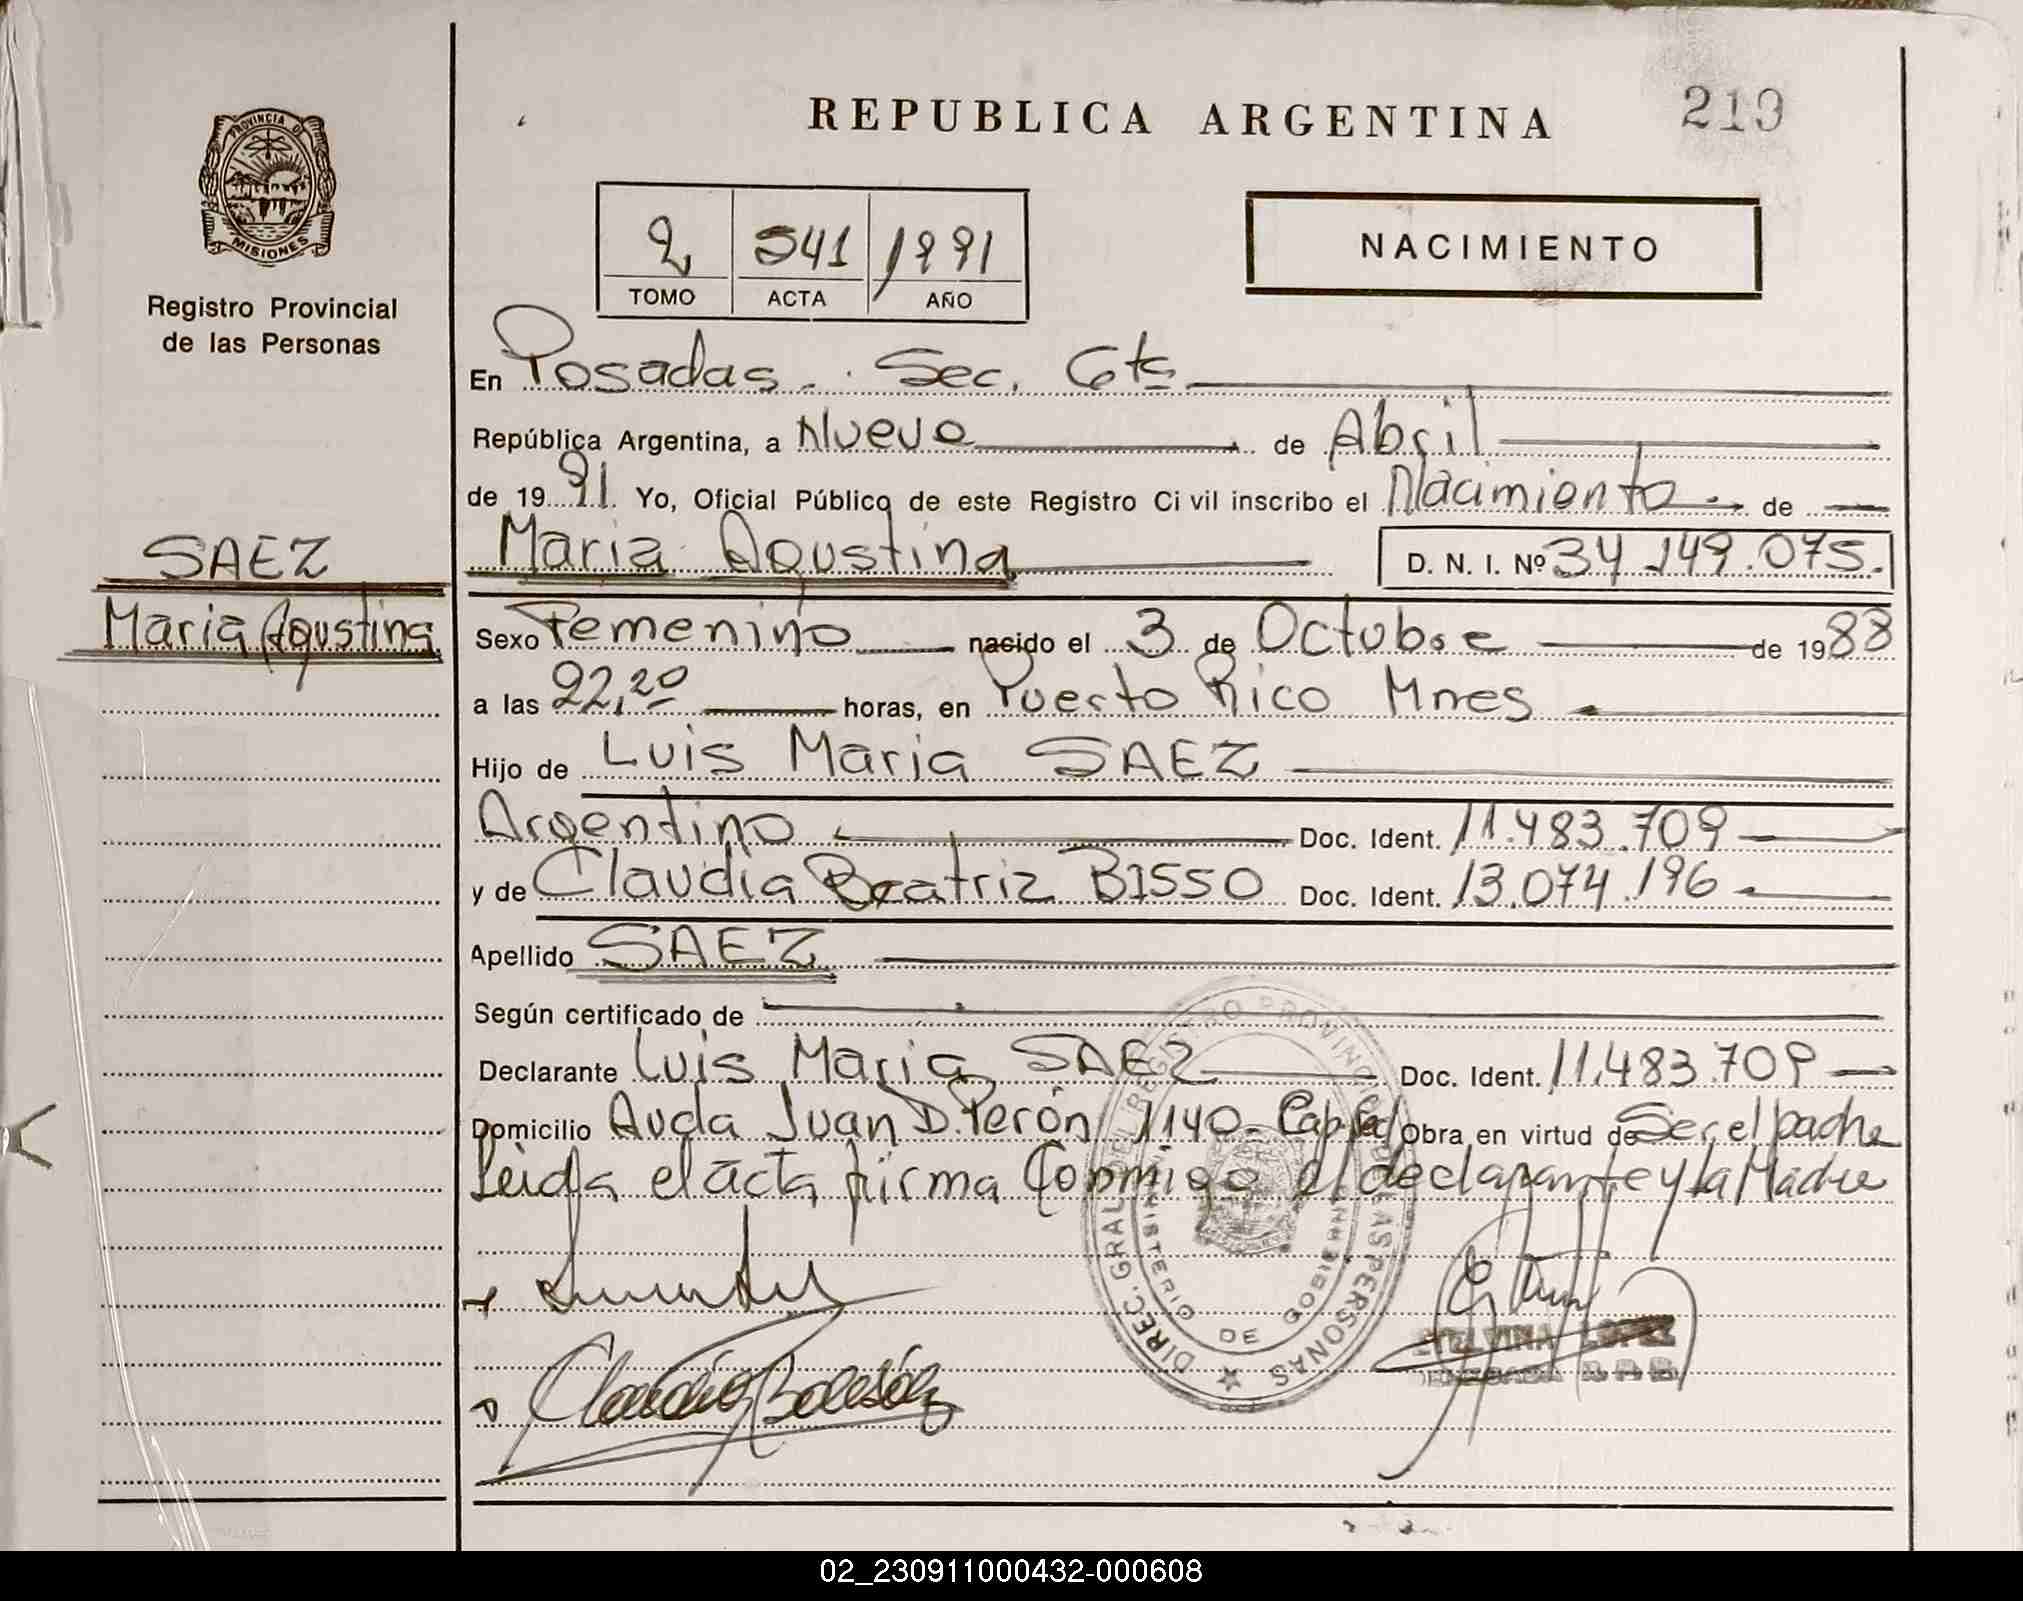 REPUBLICA ARGENTINA
219
PROVINCIA DE
MISIONES
Registro Provincial
de las Personas
2 541 1991
TOMO ACTA AÑO
NACIMIENTO
En Posadas. Sec. Gts
República Argentina, a Nueve de Abril
de 1991. Yo, Oficial Público de este Registro Civil inscribo el Nacimiento de
SAEZ
Maria Agustina
Maria Agustina D. N. I. Nº 34.149.075.
Sexo Femenino nacido el 3 de Octubre de 1988
a las 22,20 horas, en Puerto Rico Mnes
Hijo de Luis Maria SAEZ
Argentino Doc. Ident. 11.483.709
y de Claudia Beatriz BISSO Doc. Ident. 13.074.196
Apellido SAEZ
Según certificado de
Declarante Luis Maria SAEZ Doc. Ident. 11.483.709
Domicilio Avda Juan D. Perón 1140 - Cap Fed Obra en virtud de Ser el padre
Leida el acta firma Conmigo el declarante y la Madre
DIREC. GRAL. DEL REGISTRO PROVINCIAL DE LAS PERSONAS
MINISTERIO DE GOBIERNO
LOPEZ
02_230911000432-000608